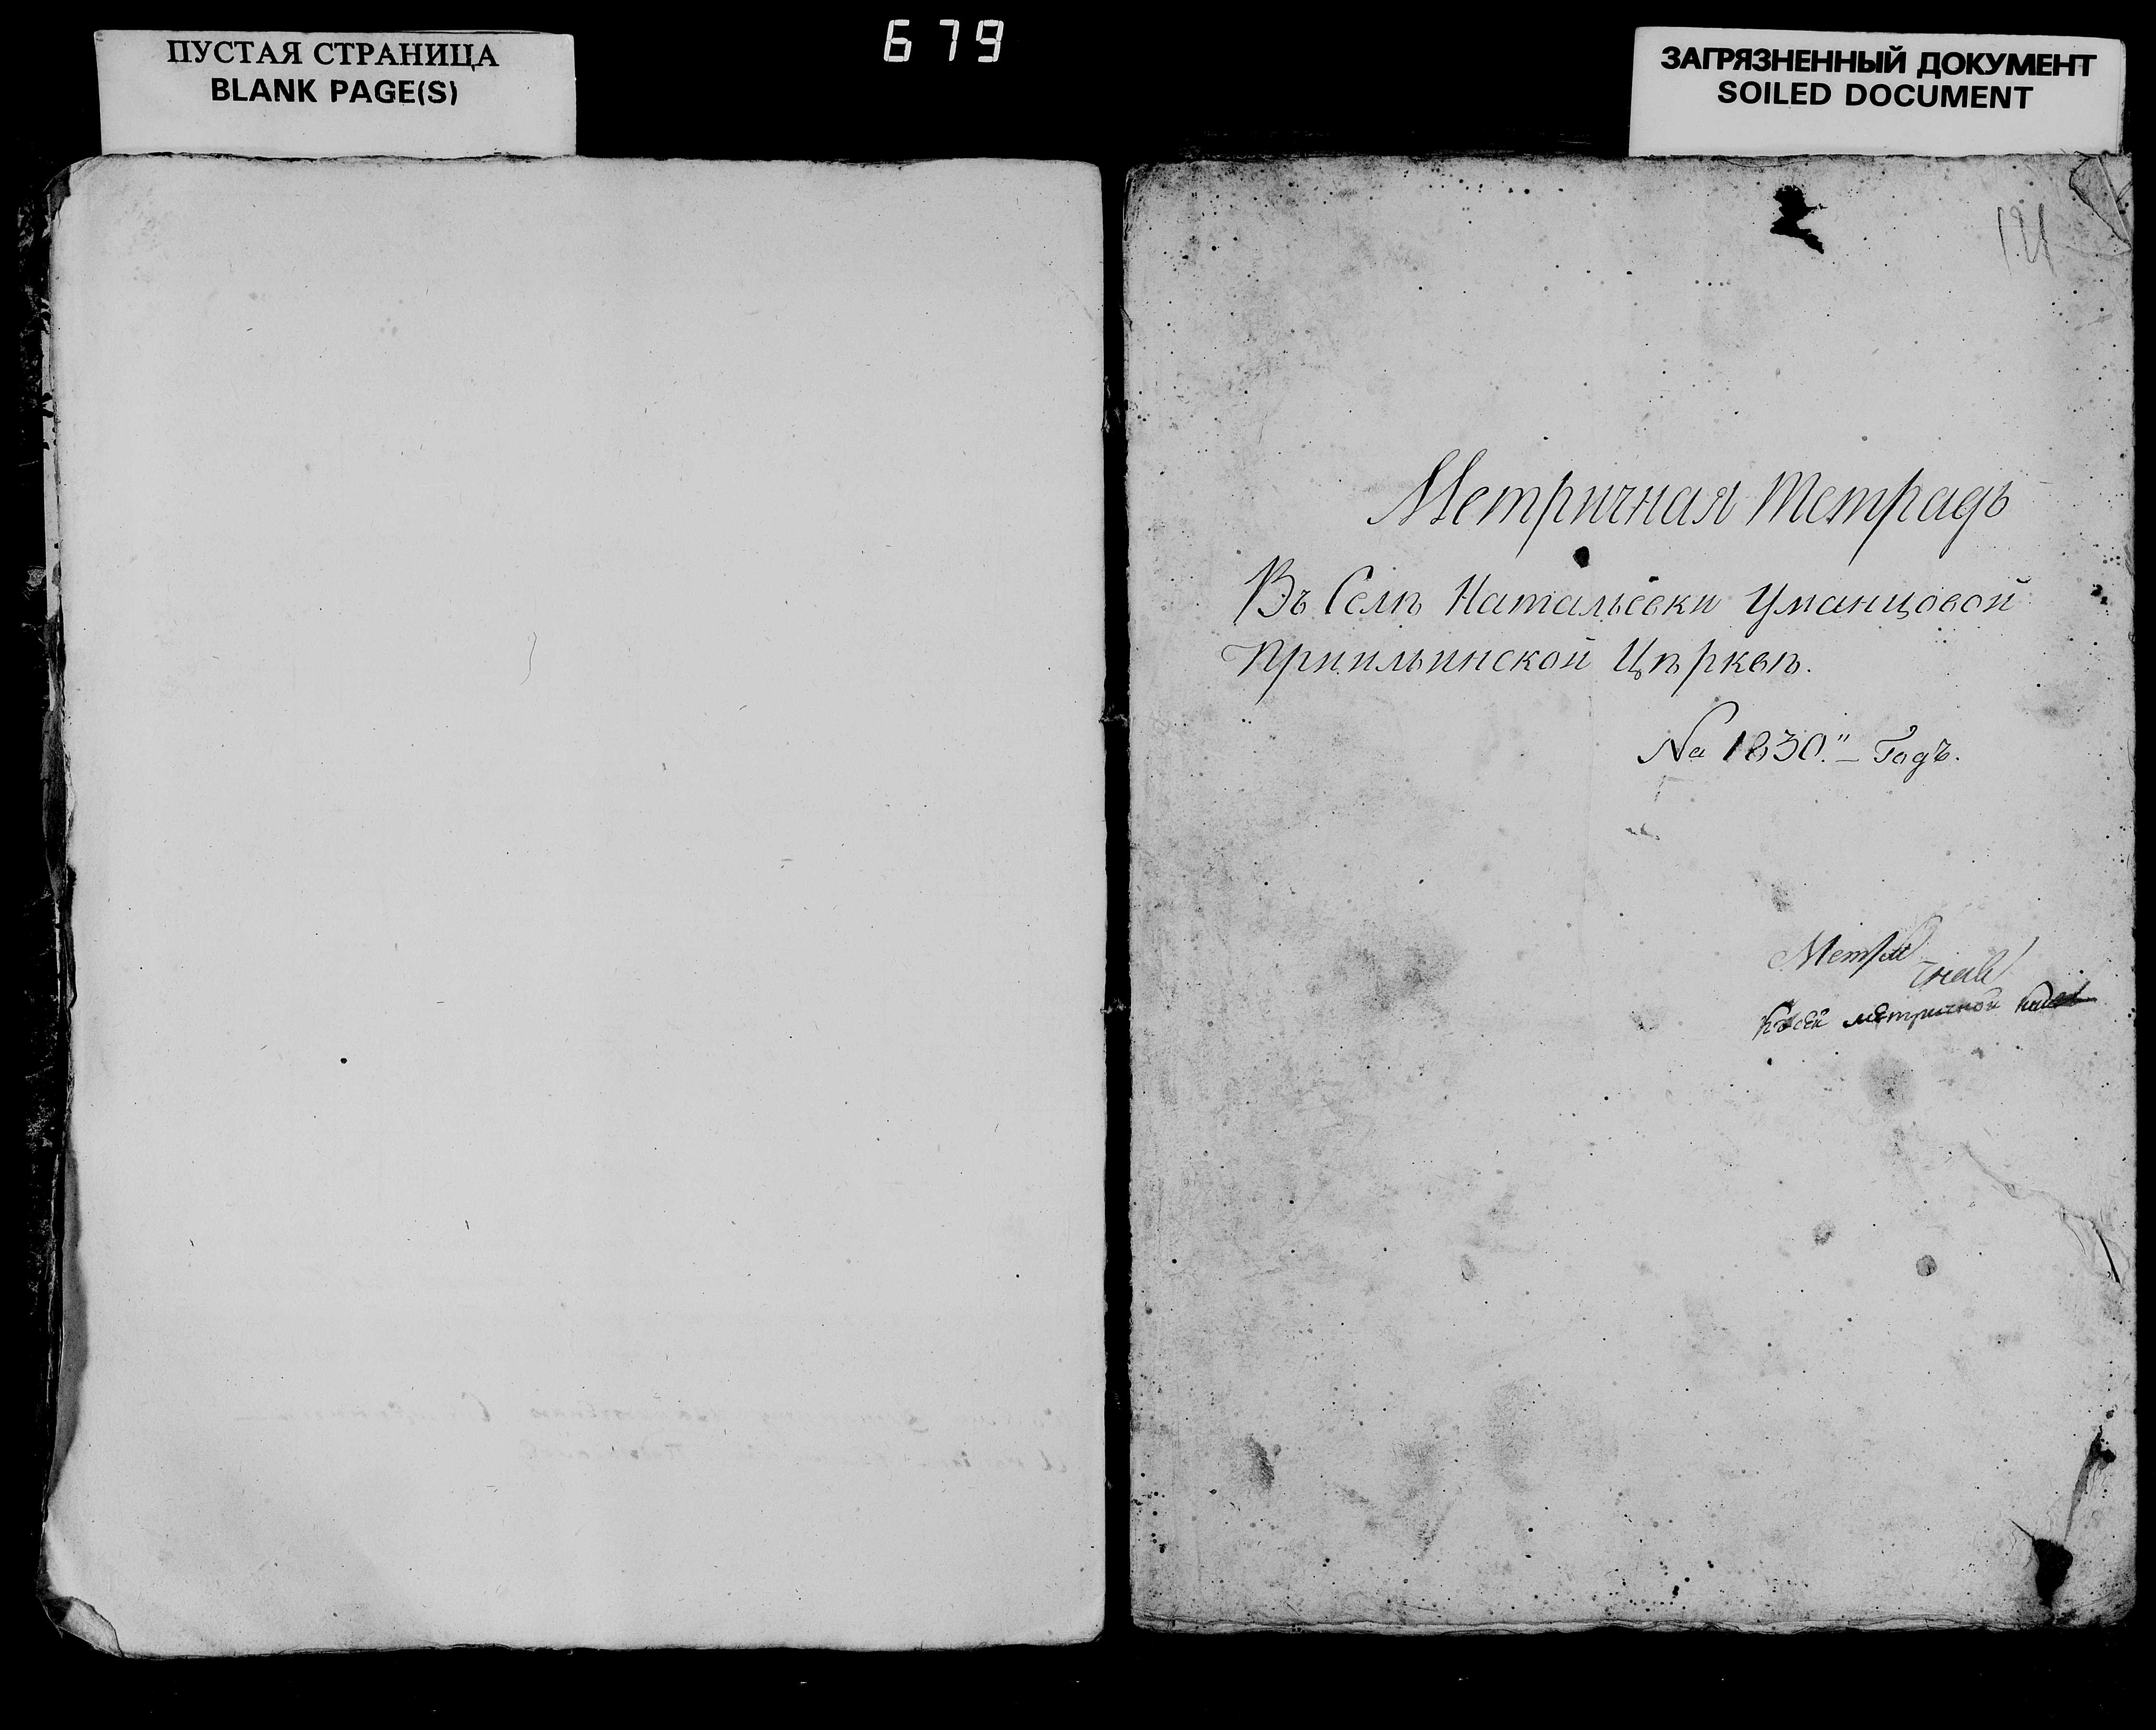 ПУСТАЯ СТРАНИЦА
BLANK PAGE(S)
679
ЗАГРЯЗНЕННЫЙ ДОКУМЕНТ
SOILED DOCUMENT
Метричная тетрадь
Въ Селѣ Натальевки Уманцовой
Приильинской Цѣрквѣ.
На 1830." – Годъ.
Метри
чная
Къ сей метричной